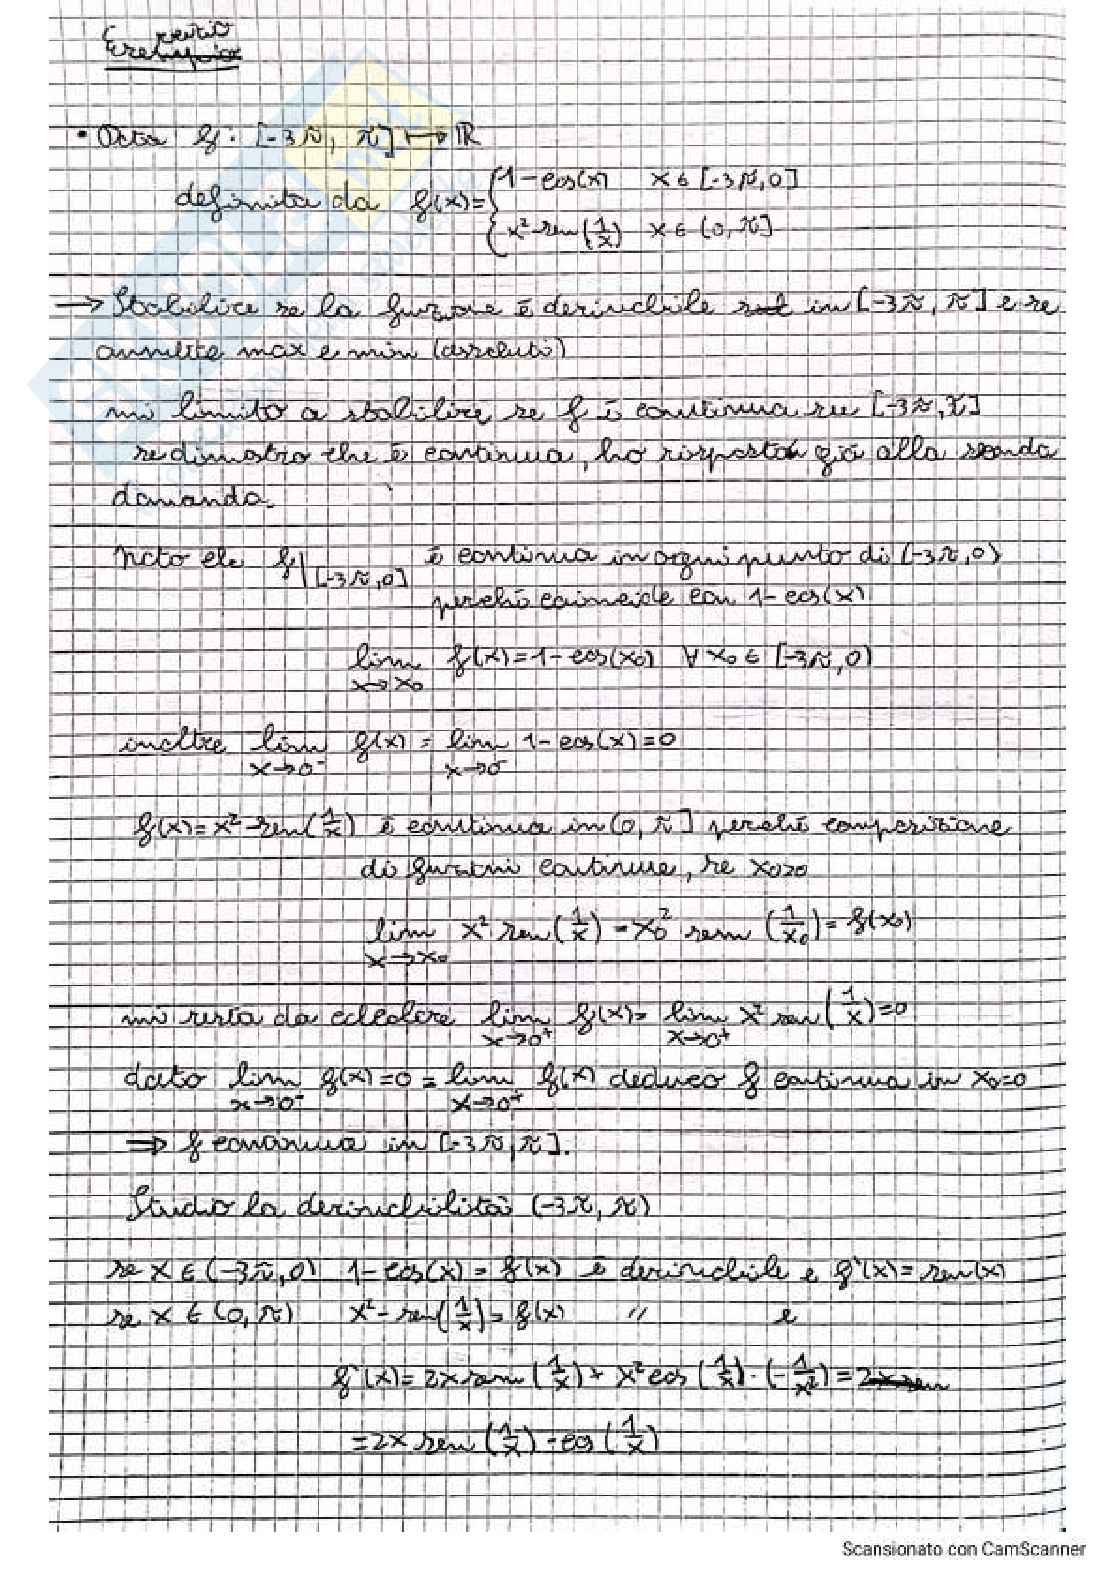 Esercizio
• Data f: [-3π, π] ↦ ℝ
definita da f(x) = { 1-cos(x) x ∈ [-3π, 0]
{ x² sen(1/x) x ∈ (0, π]
→ Stabilire se la funzione è derivabile in [-3π, π] e se
ammette max e min (assoluti)
mi limito a stabilire se f è continua su [-3π, π]
se dimostro che è continua, ho risposta già alla seconda
domanda.
Noto che f|[-3π,0] è continua in ogni punto di (-3π, 0)
perché coincide con 1-cos(x)
lim x→x₀ f(x) = 1-cos(x₀) ∀ x₀ ∈ [-3π, 0)
inoltre lim x→0⁻ f(x) = lim x→0⁻ 1-cos(x) = 0
f(x) = x² sen(1/x) è continua in (0, π] perché composizione
di funzioni continue, se x₀>0
lim x→x₀ x² sen(1/x) = x₀² sen(1/x₀) = f(x₀)
mi resta da calcolare lim x→0⁺ f(x) = lim x→0⁺ x² sen(1/x) = 0
dato lim x→0⁻ f(x) = 0 = lim x→0⁺ f(x) deduco f continua in x₀=0
⇒ f continua in [-3π, π].
Studio la derivabilità (-3π, π)
se x ∈ (-3π, 0) 1-cos(x) = f(x) è derivabile e f'(x) = sen(x)
se x ∈ (0, π) x² sen(1/x) = f(x) " e
f'(x) = 2x sen(1/x) + x² cos(1/x) · (-1/x²) =
= 2x sen(1/x) - cos(1/x)
Scansionato con CamScanner